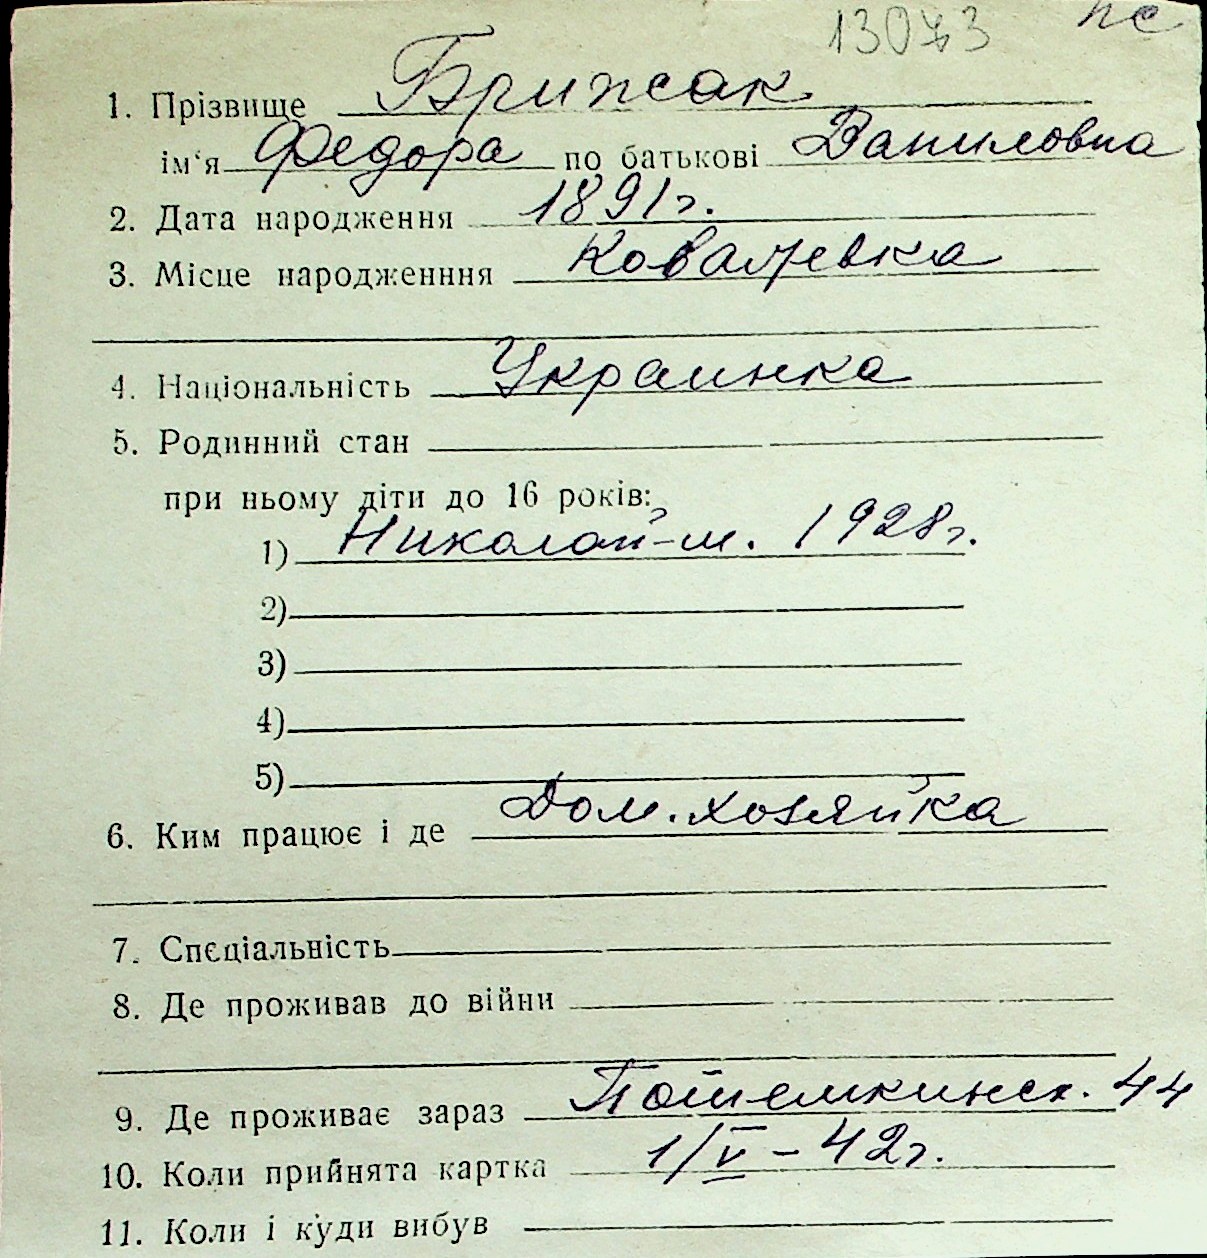 13073 пс
1. Прізвище Брижак
ім'я Федора по батькові Даниловна
2. Дата народження 1891 г.
3. Місце народженння Ковалевка
4. Національність Украинка
5. Родинний стан
при ньому діти до 16 років:
1) Николай-м. 1928 г.
2)
3)
4)
5)
6. Ким працює і де Дом. хозяйка
7. Спєціальність
8. Де проживав до війни
9. Де проживає зараз Потемкинск. 44
10. Коли прийнята картка 1/V – 42 г.
11. Коли і куди вибув